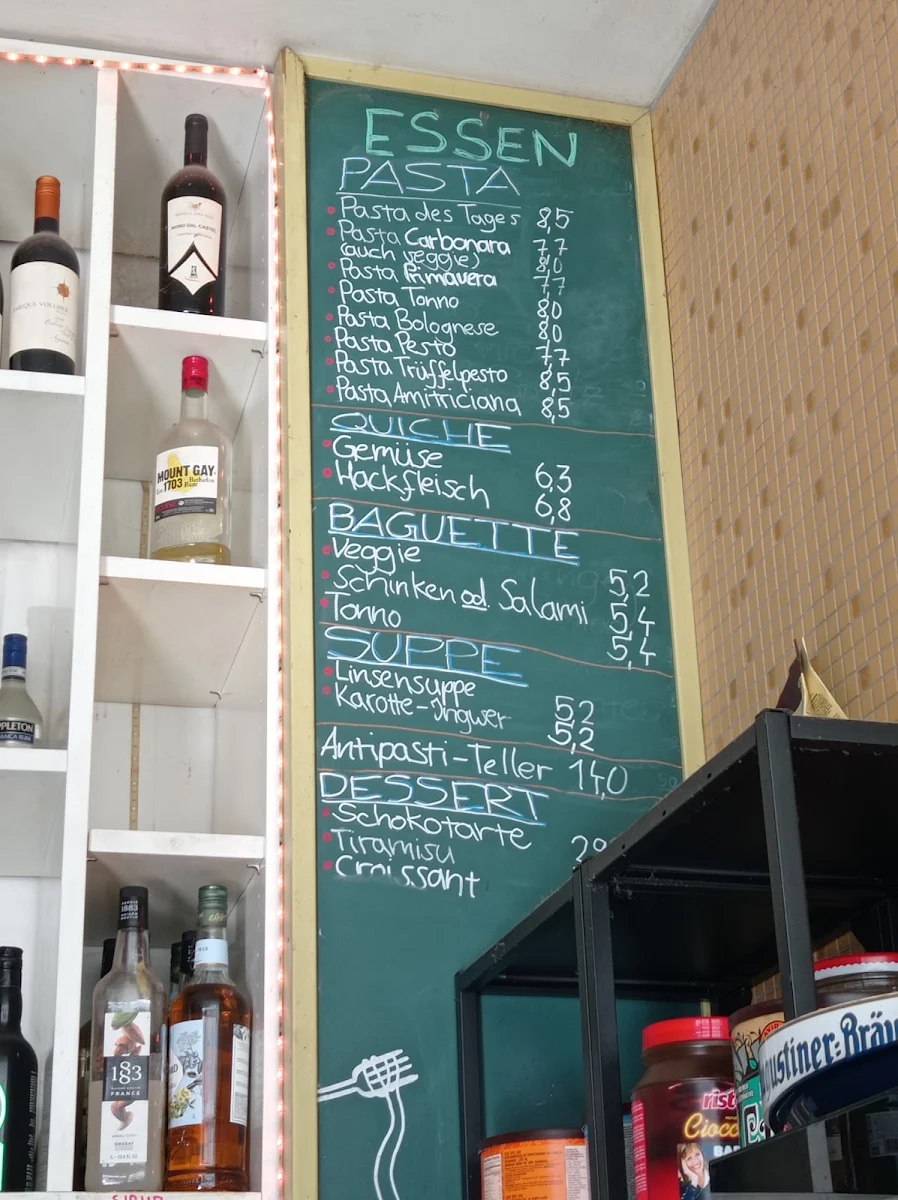 ESSEN
PASTA
Pasta des Tages 8,5
Pasta Carbonara 7,7
(auch veggie) 8,0
Pasta Primavera 7,7
Pasta Tonno 8,0
Pasta Bolognese 8,0
Pasta Pesto 7,7
Pasta Trüffelpesto 8,5
Pasta Amitriciana 8,5
QUICHE
Gemüse 6,3
Hackfleisch 6,8
BAGUETTE
Veggie 5,2
Schinken od. Salami 5,4
Tonno 5,4
SUPPE
Linsensuppe 5,2
Karotte-Ingwer 5,2
Antipasti-Teller 14,0
DESSERT
Schokotarte
Tiramisu
Croissant
MORO DAL CASTEL
MOUNT GAY
1703 Barbados
Rum
APPLETON
JAMAICA RUM
1883
1883
FRANCE
ORGEAT
SIRUP
rist
Ciocc
BAR
ustiner-Bräu